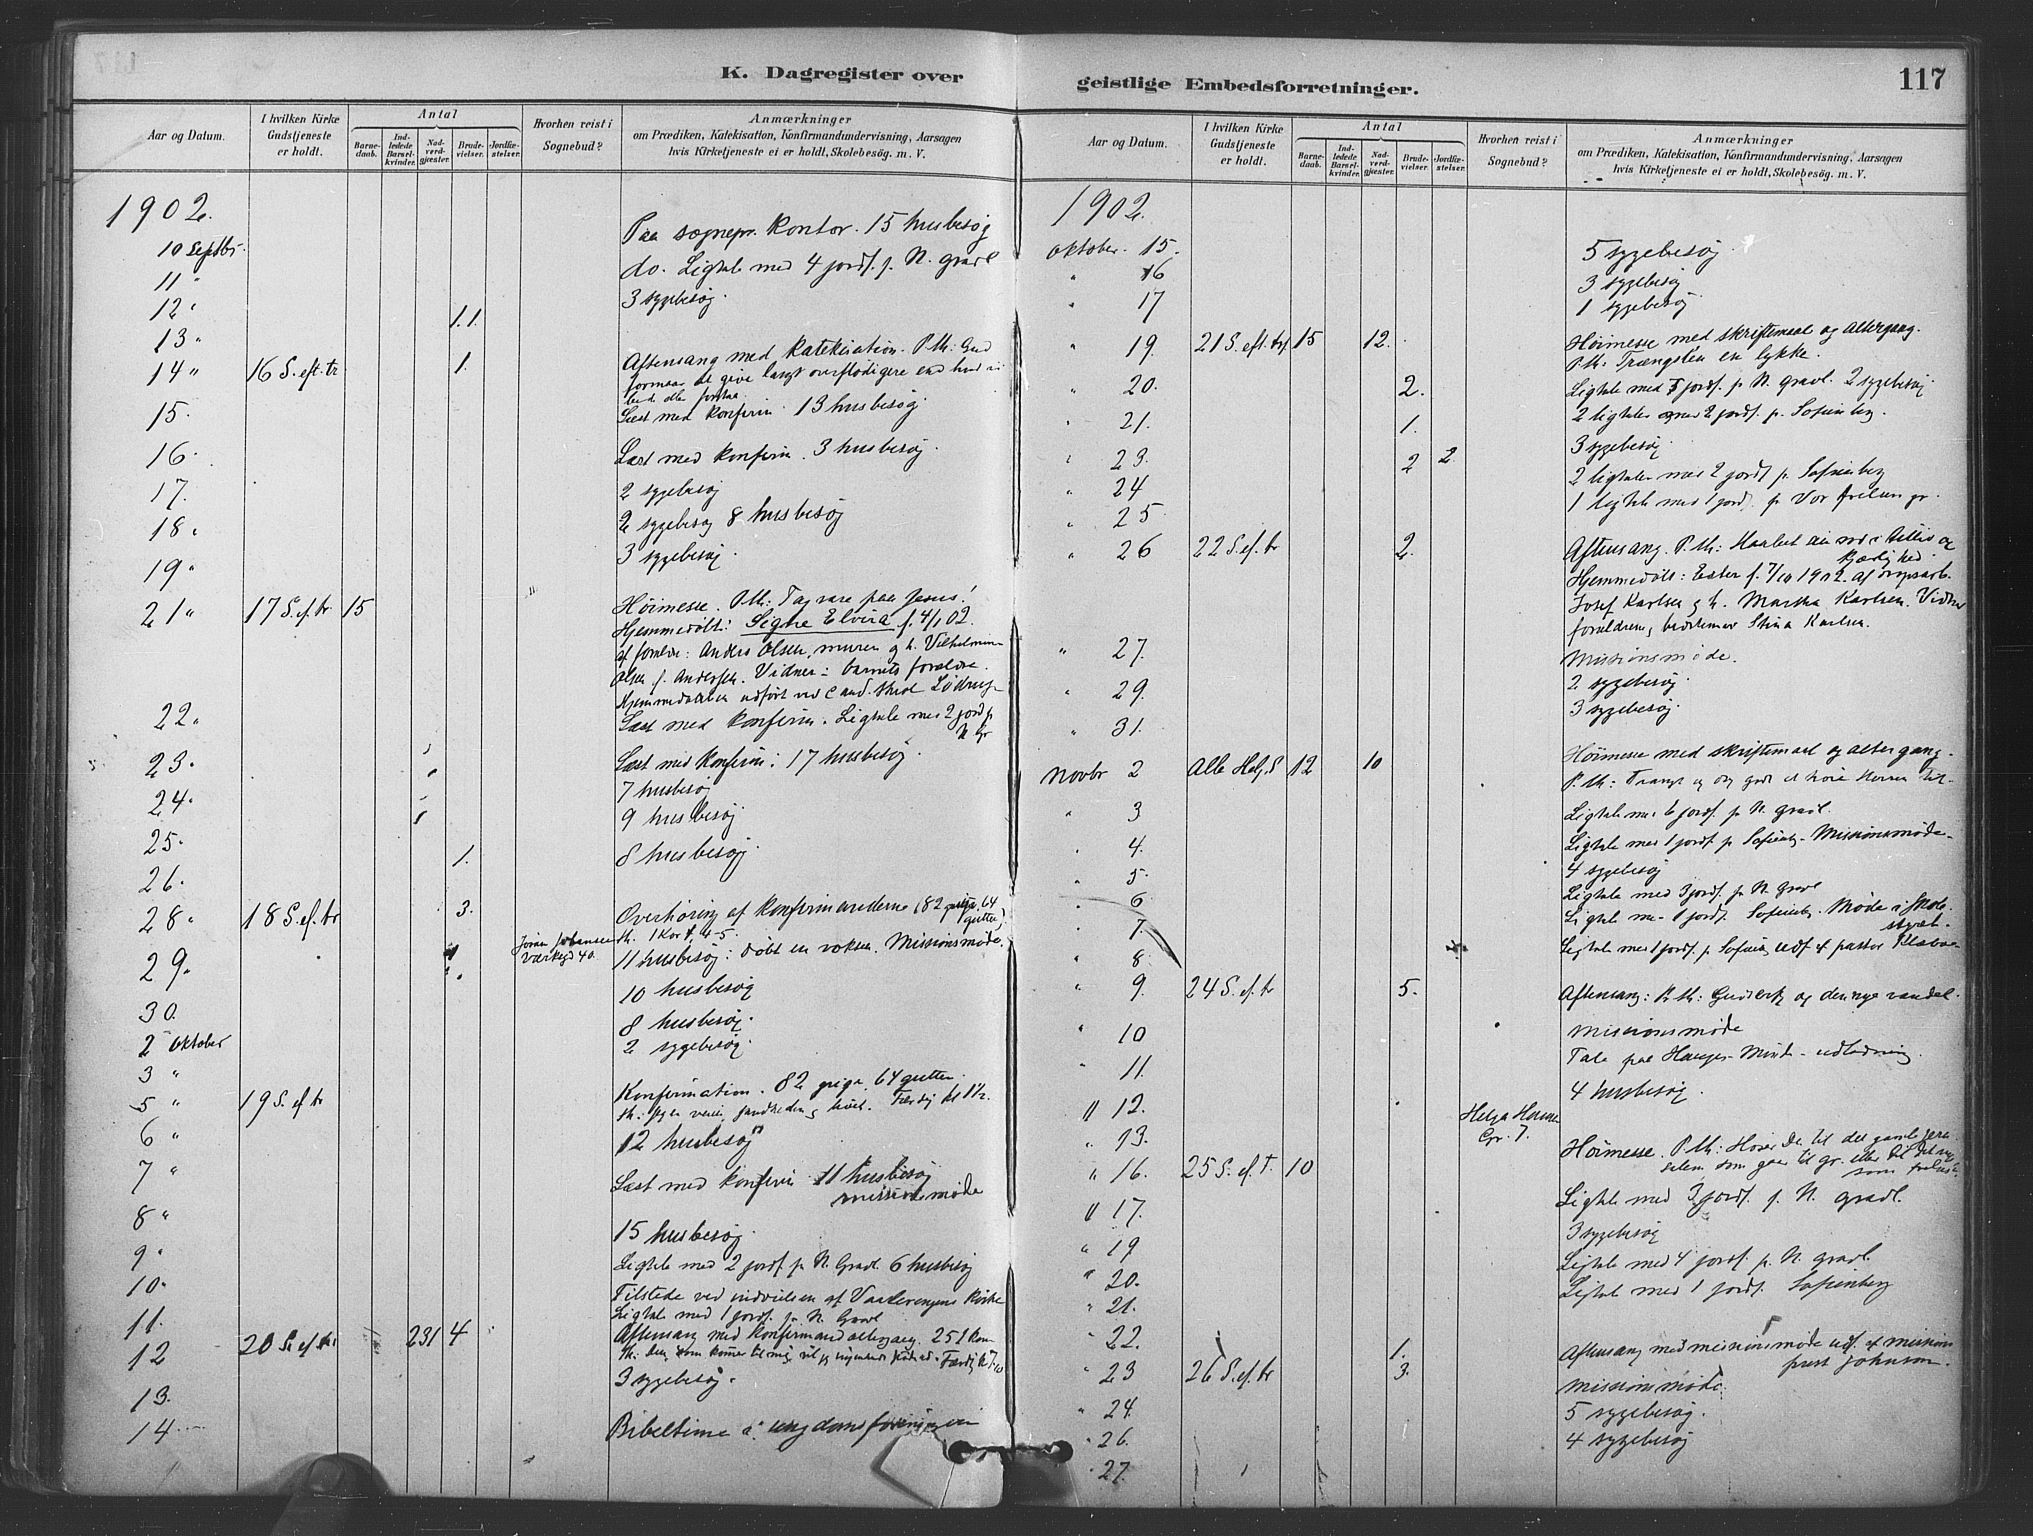 K. Dagregister over
Aar og Datum.
I hvilken Kirke Gudstjeneste er holdt.
Antal
Barne-daab.
Ind-ledede Barsel-kvinder.
Nad-verd-gjæster.
Brude-vielser.
Jordfæ-stelser.
Hvorhen reist i Sognebud?
Anmærkninger
om Prædiken, Katekisation, Konfirmandundervisning, Aarsagen
hvis Kirketjeneste ei er holdt, Skolebesøg. m. V.
1902.
10 Septbr. Paa sognepr. kontor. 15 husbesøg
11 " do. Ligtale med 4 jordf. p. N. gravl
12 " 3 sygebesøg.
13 " 1.1.
14 " 16 S. eft. tr 1. Aftensang med katekisation. P. th: Gud
formaar at give langt overflødigere end hvad vi
bede eller forstaa.
15. Læst med konfirm. 13 husbesøg.
16. Læst med konfirm. 3 husbesøg.
17. 2 sygebesøg
18 " 2 sygebesøg 8 husbesøg
19 " 3 sygebesøg.
21 " 17 S. ef. tr 15 Høimesse. P. th: Tag vare paa Jesus!
Hjemmedøbt: Signe Elvira f. 4/1 02.
af foreldr: Anders Olsen, murer og h. Vilhelmine
Olsen f. Andersen. Vidner: barnets forældre.
Hjemmedaaben udført ved cand.
22. Læst med konfirm. Ligtale med 2 jord p
N. Gr
23. Læst med konfirm: 17 husbesøg.
24. 7 husbesøg
25. 9 husbesøg
26. 1. 8 husbesøg.
28 " 18 S. ef. tr 3. Overhøring af konfirmanderne (82 piger, 64
gutter)
th. 1 Kor 1, 4-5.
29. Johansen
40. 11 husbesøg: døbt en voksen. Missionsmøde.
30. 10 husbesøg
2 Oktober 8 husbesøg.
3 " 2 sygebesøg.
5 " 19 S. ef tr Konfirmation. 82 piger, 64 gutter.
th: Jeg er veien, sandheden og livet. Færdig kl 1½.
6 " 12 husbesøg
7 " Læst med konfirm 11 husbesøg
missionsmøde
8 " 15 husbesøg
9 " Ligtale med 2 jordf p N. Gravl. 6 husbesøg
10. Tilstede ved indvielsen af Vaalerengens Kirke
11. Ligtale med 1 jordf. p. N. Gravl
12 20 S. ef. tr 231 4 Aftensang med konfirmandaltergang. 251 kom
th. den, som kommer til mig, vil jeg ingenlunde støde ud. Færdig kl
13. 3 sygebesøg.
14 Bibeltime i ungdomsforeningen
geistlige Embedsforretninger.
117
Aar og Datum.
I hvilken Kirke Gudstjeneste er holdt.
Antal
Barne-daab.
Ind-ledede Barsel-kvinder.
Nad-verd-gjæster.
Brude-vielser.
Jordfæ-stelser.
Hvorhen reist i Sognebud?
Anmærkninger
om Prædiken, Katekisation, Konfirmandundervisning, Aarsagen
hvis Kirketjeneste ei er holdt, Skolebesøg. m. V.
1902.
Oktober 15. 5 sygebesøg.
" 16 3 sygebesøg
" 17 1 sygebesøg
" 19. 21 S. eft. trf. 15 12. Høimesse med skriftemaal og altergang.
P. th: Trængslen en lykke.
" 20. 2. Ligtale med 5 jordf. p N. gravl. 2 sygebesøg.
" 21. 1. 2 ligtaler med 2 jordf. p. Sofienberg.
" 23. 2 2 3 sygebesøg.
" 24 2 ligtaler med 2 jordf p. Sofienberg
" 25 1 ligtale med 1 jord p Vor frelsers gr.
" 26 22 S. ef. tr 2. Aftensang. P. th:
kjærlighed.
Hjemmedøbt: Ester f. 7/10 1902. af
Josef Karlsen og h. Martha Karlsen. Vidner
forældrene, bedstemor Stina Karlsen.
" 27. Missionsmøde.
" 29. 2 sygebesøg.
" 31. 3 sygebesøg.
Novbr 2 Alle Helg. S 12 10 Høimesse med skriftemaal og altergang.
P. th: Trangt og dog godt at høre Herren til.
" 3 Ligtale med 6 jordf. p. N. gravl.
" 4. Ligtale med 1 jordf. p Sofienbg. Missionsmøde.
" 5. 4 sygebesøg
" 6 Ligtale med 3 jordf. p. N. Gravl
" 7. Ligtale med 1 jordf. Sofienbg. Møde i Skole-
styret.
" 8. Ligtale med 1 jordf. p. Sofienbg udf af pastor
" 9. 24 S. ef. tr 5. Aftensang: P. th: og den nye vandel.
" 10 Missionsmøde
" 11. Tale paa Hauges Minde
" 12. 4 husbesøg.
" 13. Helga
Gr. 7.
" 16. 25 S. ef. T. 10 Høimesse. P. th: Hører du til det gamle Jeru-
salem som gaar til gr. eller til det nye
som
" 17. Ligtale med 3 jordf. p. N. gravl.
" 19 3 sygebesøg
" 20. Ligtale med 4 jordf. p. N. gravl.
" 21. Ligtale med 1 jordf. Sofienberg
" 22. 1.
" 23 26 S. ef. tr 3. Aftensang med missionsmøde udf. af missions
prest Johnson.
" 24. Missionsmøde.
" 26. 5 sygebesøg.
" 27. 4 sygebesøg